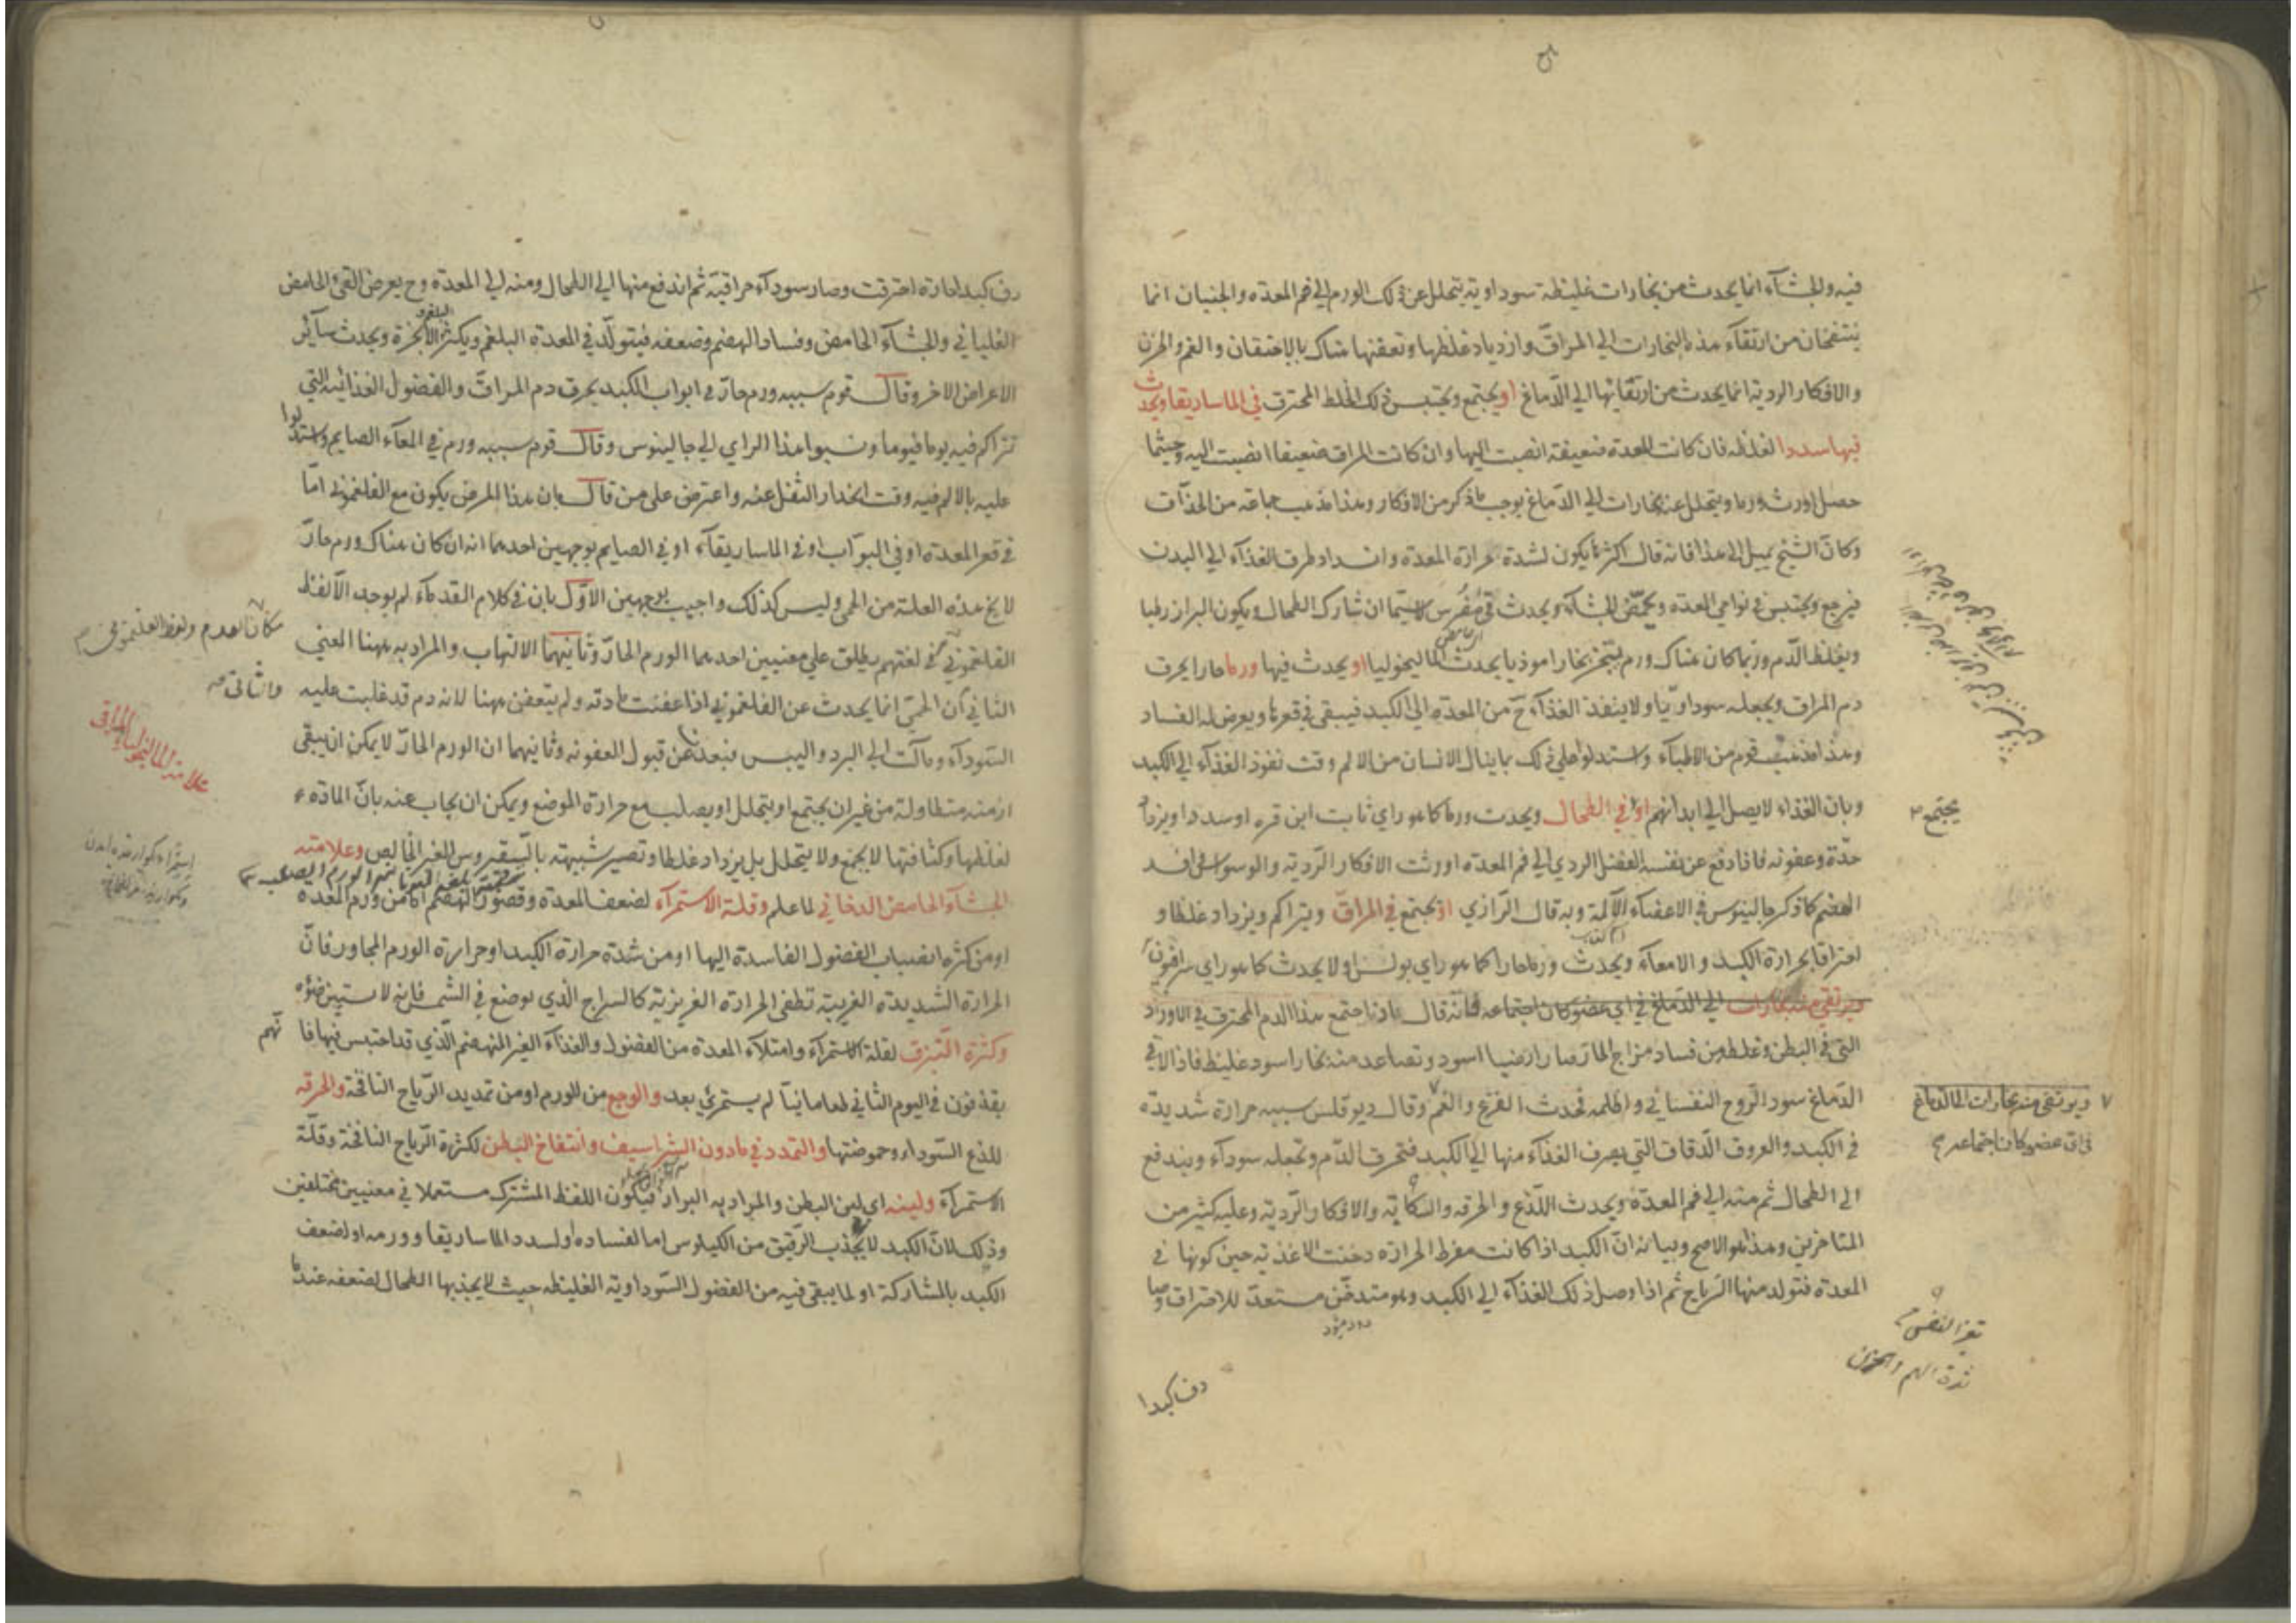 فيه والجشآء انما يحدث من بخارات غليظة سوداوية يتحلل عن ذلك الورم الى فم المعدة والجنبان انما
ينتفخان من ارتقآء هذه البخارات الى المراقّ وازدياد غلظها وتعفنها هناك بالاحتقان والغم والحزن
والافكار الردية انما يحدث من ارتقائها الى الدّماغ او يجتمع ويحتبس ذلك الخلط المحترق في الماساريقا ويحدث
فيها سددا لغلظه فان كانت المعدة ضعيفة انصبت اليها وان كانت المراق ضعيفا انصبت اليه وحيثما
حصل اورث ورما ويتحلل عنه بخارات الى الدّماغ يوجب ما ذكر من الافكار وهذا مذهب جماعة من الحذّاق
وكانّ الشيخ يميل الى هذا فانه قال اكثر ما يكون لشدة حرارة المعدة وانسداد طرق الغذآء الى البدن
فيرجع ويحتبس في نواحي المعدة ويحمّض الجشآء ويحدث قئ مُضرس لا سيّما ان شارك الطحال ويكون البراز رطبا
ويغلظ الدّم وربما كان هناك ورم يبخر بخارا موذيا يحدث الماليخوليا او يحدث فيها ورما حارا يحرق
دم المراق ويجعله سوداويّا ولا ينفذ الغذآء ح من المعدة الى الكبد فيبقى في قعرها ويعرض له الفساد
وهذا مذهب قوم من الاطبآء واستدلوا على ذلك بما ينال الانسان من الالم وقت نفوذ الغذآء الى الكبد
وبان الغذاء لا يصل الى ابدانهم او في الطحال ويحدث ورما كما هو راي ثابت ابن قره او سددا ويزداد
يجتمع
حدّة وعفونة فاذا دفع عن نفسه الفضل الردي الى فم المعدة اورثت الافكار الرّدية والوسواس وافسد
الهضم كما ذكر جالينوس في الاعضآء الآلمة وبه قال الرّازي او يجتمع في المراقّ ويتراكم ويزداد غلظا و
احتراقا بحرارة الكبد والامعآء ويحدث ورما حارا كما هو راي بولس او لا يحدث كما هو راي سرافيون
ويرتقى منه بخارات الى الدّماغ في اي عضو كان اجتماعه فانّه قال اذا اجتمع هذا الدم المحترق في الاوراد
التى في البطن وغلظ من فساد مزاج الحارّ صار ارضيا اسود وتصاعد منه بخار اسود غليظ فاذا لاقى
الدّماغ سود الرّوح النفسانيّ واظلمه فحدث الفزع والغم وقال ديوقلس سببه حرارة شديدة
ويرتقى منه بخارات الى الدّماغ
في اي عضو كان اجتماعه
في الكبد والعروق الدّقاق التي يصرف الغذآء منها الى الكبد فتحرق الدّم وتجعله سودآء ويندفع
الى الطحال ثم منه الى فم المعدة ويحدث اللّذع والحرقة والكآبة والافكار الرّدية وعليه كثير من
المتاخرين وهذا هو الاصح وبيانه انّ الكبد اذا كانت مفرط الحرارة دخنت الاغذية حين كونها في
المعدة فتولد منها الرّياح ثم اذا وصل ذلك الغذآء الى الكبد وهو متدخّن مستعدّ للاحتراق وصا
شدة الهم والحزن
دف كبدا
دف كبدا حارة احترقت وصار سودآء حراقية ثم اندفع منها الى الطحال ومنه الى المعدة وح يعرض القئ الحامض
الغلياني والجشآء الحامض وفساد الهضم وضعفه فيتولّد في المعدة البلغم ويكثر الابخرة ويحدث سآئر
الاعراض الاخر وقال قوم سببه ورم حارّ في ابواب الكبد يحرق دم المراقّ والفضول الغذائية التي
تتراكم فيه يوما فيوما ونسبوا هذا الراي الى جالينوس وقال قوم سببه ورم في المعآء الصايم واستدلوا
عليه بالالم فيه وقت انحدار الثفل عنه واعترض على من قال بان هذا المرض يكون مع الفلغموني امّا
في قعر المعدة او في البوّاب او في الماساريقآء او في الصايم بوجهين احدهما انه ان كان هناك ورم حارّ
لا يخ هذه العلة من الحمى وليس كذلك واجيب بوجهين الاوّل بان في كلام القدمآء لم يوجد الّا لفظ
الفلغموني في لغتهم يطلق على معنيين احدهما الورم الحارّ وثانيهما الالتهاب والمراد به ههنا المعني
الثاني انّ الحمّى انما يحدث عن الفلغموني اذا عفنت مادته ولم يتعفن ههنا لانه دم قد غلبت عليه
والثاني
علامة الماليخوليا المراقى
السّودآء ومالت الى البرد واليبس فبعدت عن قبول العفونة وثانيهما ان الورم الحارّ لا يمكن ان يبقى
ازمنة متطاولة من غير ان يجتمع او يتحلل او يصلب مع حرارة الموضع ويمكن ان يجاب عنه بانّ المادّة
لغلظها وكثافتها لا يجمع ولا يتحلل بل يزداد غلظا وتصير شبيهة بالسقيروس الغير الخالص وعلامته
الجشآء الحامض الدخاني لما علم وقلة الاستمرآء لضعف المعدة وقصور الهضم اما من ورم المعدة
او من كثرة انصباب الفضول الفاسدة اليها او من شدة حرارة الكبد او حرارة الورم المجاور فانّ
الحرارة الشديدة الغريبة تطفى الحرارة الغريزية كالسراج الّذي يوضع في الشمس فانه لا يستبين ضوؤه
وكثرة التبزق لقلة الاستمرآء وامتلآء المعدة من الفضول والغذآء الغير المنهضم الّذي قد احتبس فيها فا
نّهم
يقذفون في اليوم الثاني طعاما نيّا لم يستمرئ بعد والوجع من الورم او من تمديد الرّياح النافخة والحرقة
للذع السّوداء وحموضتها والتمدد في مادون الشراسيف وانتفاخ البطن لكثرة الرّياح النافخة وقلّة
الاستمراء ولينه اي لين البطن والمراد به البراز فيكون اللفظ المشترك مستعملا في معنيين مختلفين
وذلك لانّ الكبد لا يجذب الرّقيق من الكيلوس اما لفساده او لسدد الماساريقا وورمه او لضعف
الكبد بالمشاركة او لما يبقى فيه من الفضول السّوداوية الغليظة حيث لا يجذبها الطحال لضعفه عندها